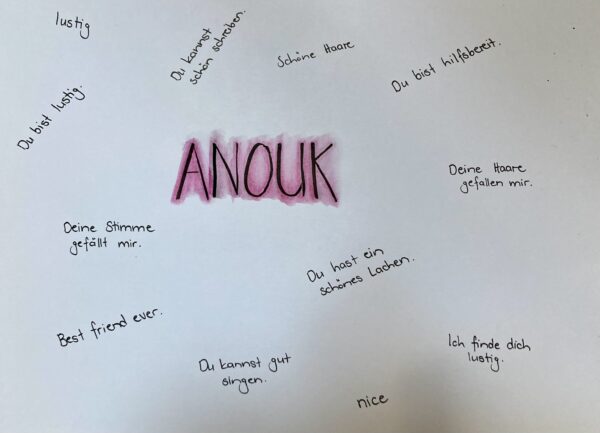 lustig
Du kannst
schön schreiben.
Schöne Haare
Du bist hilfsbereit.
Du bist lustig.
ANOUK
Deine Haare
gefallen mir.
Deine Stimme
gefällt mir.
Du hast ein
schönes Lachen.
Best friend ever.
Ich finde dich
lustig.
Du kannst gut
singen.
nice